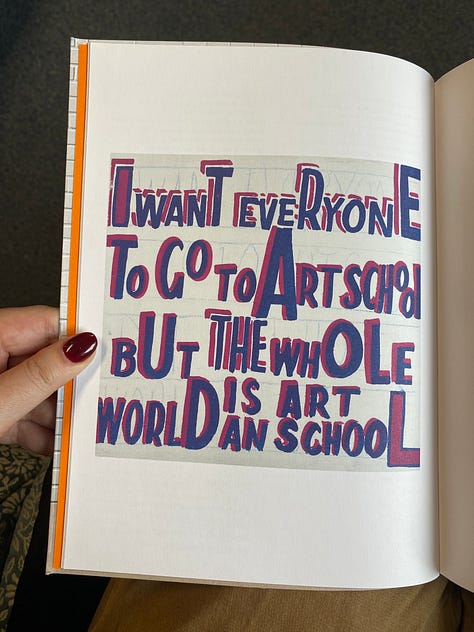 I WANT EVERYONE
TO GO TO ART SCHOOL
BUT THE WHOLE
WORLD IS AN ART SCHOOL